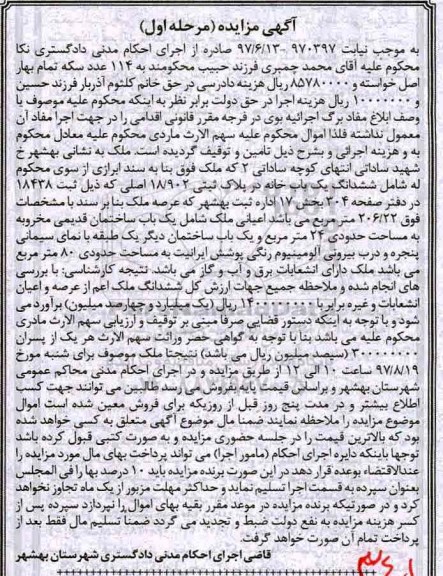 آگهی مزایده (مرحله اول)
به موجب نیابت ۹۷۰۳۹۷ -۹۷/۶/۱۳ صادره از اجرای احکام مدنی دادگستری نکا
محکوم علیه آقای محمد چمبری فرزند حبیب محکومند به ۱۱۴ عدد سکه تمام بهار
اصل خواسته و ۸۵۷۸۰۰۰۰ ریال هزینه دادرسی در حق خانم کلثوم آذربار فرزند حسین
و ۱۰۰۰۰۰۰۰ ریال هزینه اجرا در حق دولت برابر نظر به اینکه محکوم علیه موصوف با
وصف ابلاغ مفاد برگ اجرائیه بوی در فرجه مقرر قانونی اقدامی را در جهت اجرا مفاد آن
معمول نداشته فلذا اموال محکوم علیه سهم الارث ماردی محکوم علیه معادل محکوم
به و هزینه اجرائی و بشرح ذیل تامین و توقیف گردیده است. ملک به نشانی بهشهر خ
شهید ساداتی انتهای کوچه ساداتی ۲ که ملک فوق بنا به سند ابرازی از سوی محکوم
له شامل ششدانگ یک باب خانه در پلاک ثبتی ۱۸/۹۰۲ اصلی که ذیل ثبت ۱۸۴۳۸
در دفتر صفحه ۳۰۴ بخش ۱۷ اداره ثبت بهشهر که عرصه ملک بنا بر سند با مشخصات
فوق ۲۰۶/۲۲ متر مربع می باشد اعیانی ملک شامل یک باب ساختمان قدیمی مخروبه
به مساحت حدودی ۲۴ متر مربع و یک باب ساختمان دیگر یک طبقه با نمای سیمانی
پنجره و درب بیرونی آلومینیوم رنگی پوشش ایرانیت به مساحت حدودی ۸۰ متر مربع
می باشد ملک دارای انشعابات برق و آب و گاز می باشد. نتیجه کارشناسی: با بررسی
های انجام شده و ملاحظه جمیع جهات ارزش کل ششدانگ ملک اعم از عرصه و اعیان
انشعابات و غیره برابر با ۱۴۰۰۰۰۰۰۰۰ ریال (یک میلیارد و چهارصد میلیون) برآورد می
شود و با توجه به اینکه دستور قضایی صرفا مبنی بر توقیف و ارزیابی سهم الارث مادری
محکوم علیه می باشد بنا به توجه به گواهی حصر وراثت سهم الارث هر یک از پسران
۳۰۰۰۰۰۰۰۰ (سیصد میلیون ریال می باشد) نتیجتا ملک موصوف برای شنبه مورخ
۹۷/۸/۱۹ ساعت ۱۰ الی ۱۲ از طریق مزایده و در اجرای احکام مدنی محاکم عمومی
شهرستان بهشهر و براساس قیمت پایه بفروش می رسد طالبین می توانند جهت کسب
اطلاع بیشتر و در مدت پنج روز قبل از روزیکه برای فروش معین شده است اموال
موضوع مزایده را ملاحظه نمایند ضمنا مال موضوع آگهی متعلق به کسی خواهد شده
بود که بالاترین قیمت را در جلسه حضوری مزایده و به صورت کتبی قبول کرده باشد
توجها باینکه دایره اجرای احکام (مامور اجرا) می تواند پرداخت بهای مال مورد مزایده را
عندالاقتضاء بوعده قرار دهد در این صورت برنده مزایده باید ۱۰ درصد بها را فی المجلس
بعنوان سپرده به قسمت اجرا تسلیم نماید و حداکثر مهلت مزبور از یک ماه تجاوز نخواهد
کرد و در صورتیکه برنده مزایده در موعد مقرر بقیه بهای اموال را نپردازد سپرده پس از
کسر هزینه مزایده به نفع دولت ضبط و تجدید می گردد ضمنا تسلیم مال فقط بعد از
پرداخت تمام آن صورت خواهد گرفت.
قاضی اجرای احکام مدنی دادگستری شهرستان بهشهر